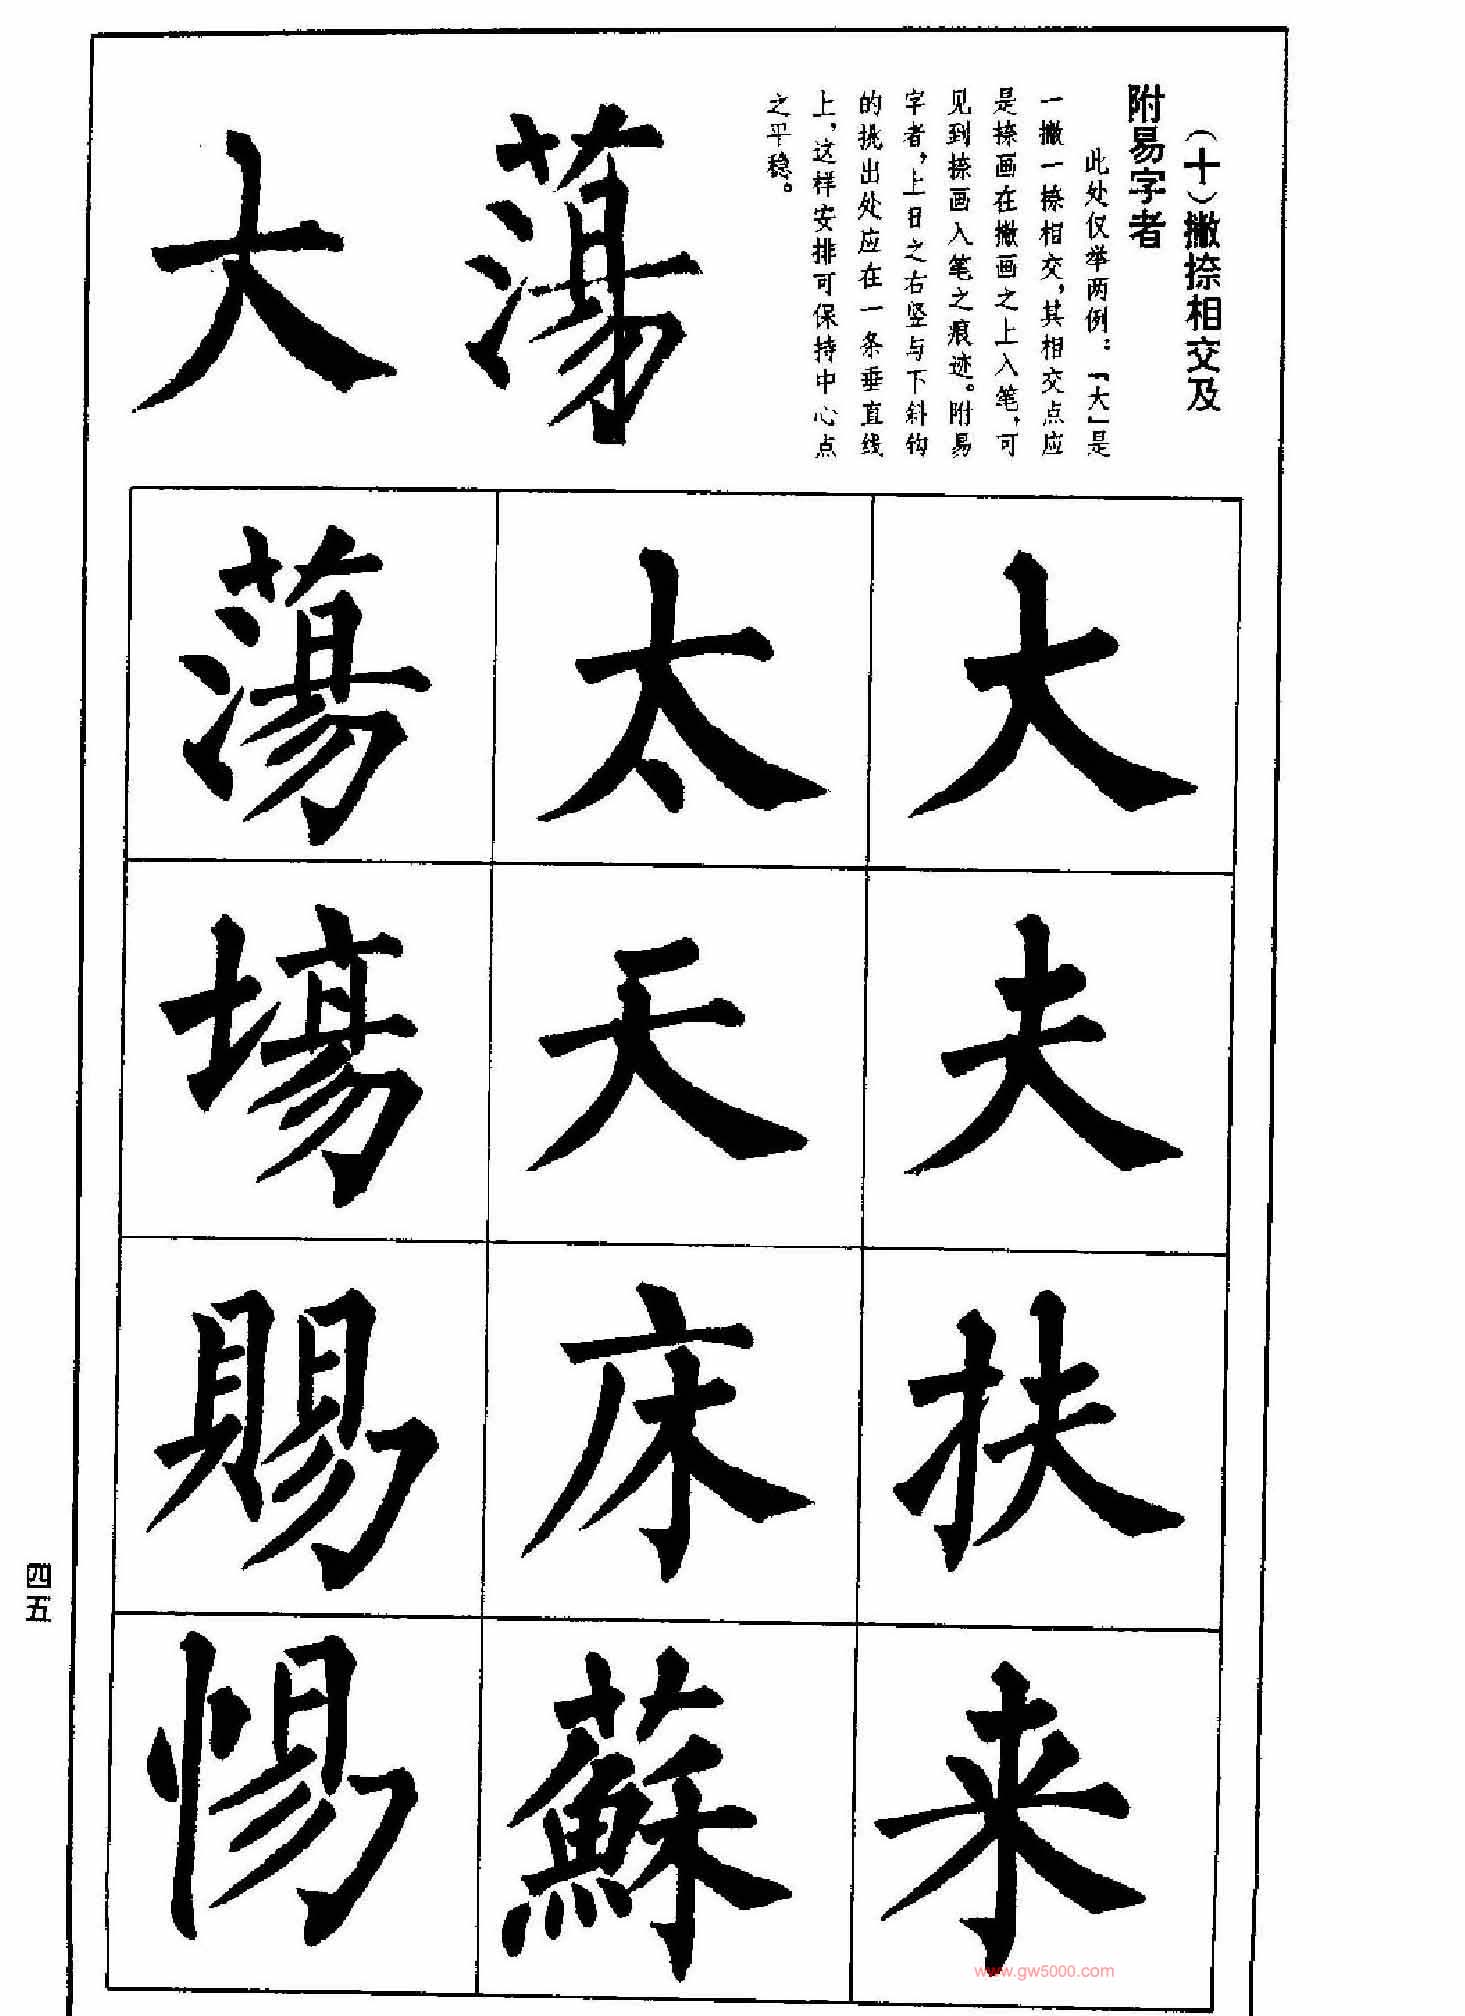 (十)撇捺相交及
附易字者
此处仅举两例:「大」是
一撇一捺相交,其相交点应
是捺画在撇画之上入笔,可
见到捺画入笔之痕迹。附易
字者,上日之右竖与下斜钩
的挑出处应在一条垂直线
上,这样安排可保持中心点
之平稳。
蕩
大
大
夫
扶
来
太
天
床
蘇
蕩
塲
賜
惕
四五
www.gw5000.com